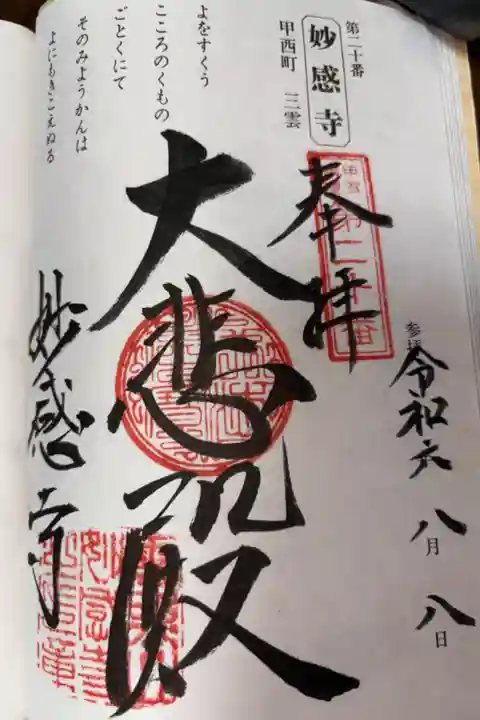 第二十番
妙感寺
甲西町 三雲
よをすくう
こころのくもの
ごとくにて
そのみようかんは
よにもきこえぬる
奉拝
甲西
第二十番
大悲殿
妙感寺
参拝
令和六
八月
八日